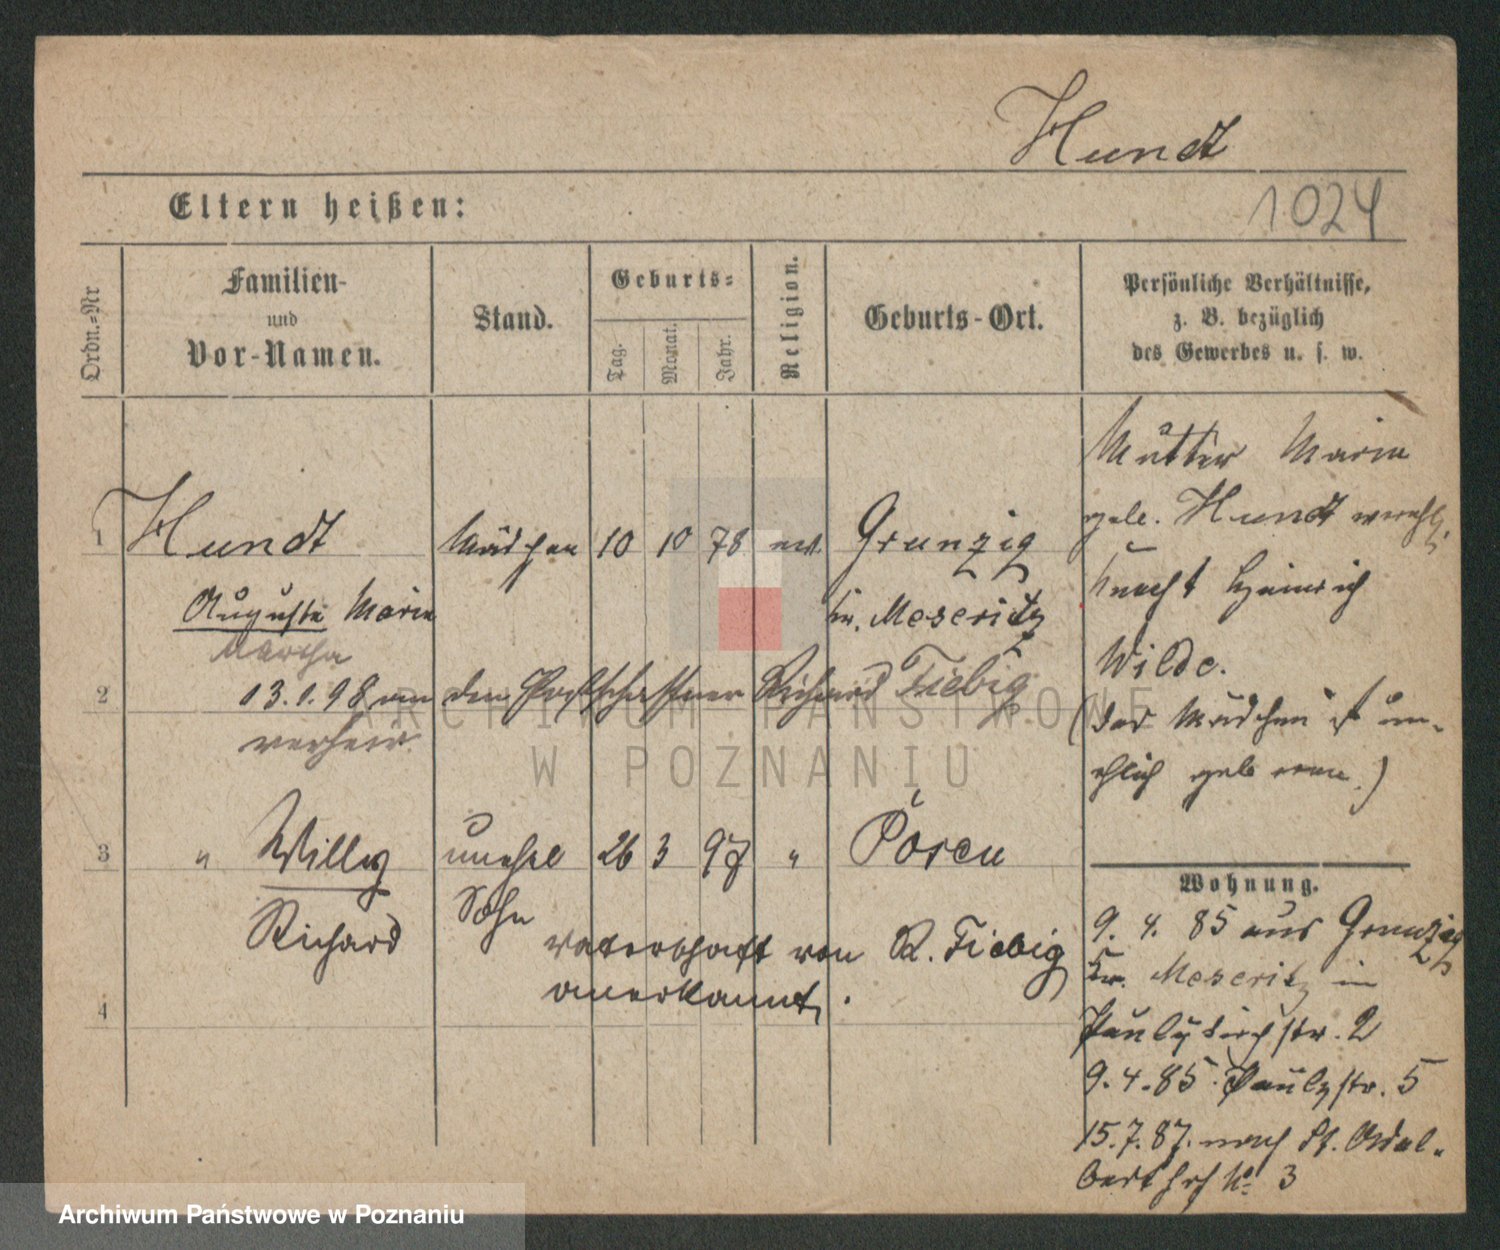 Hundt
Eltern heißen:
1024
Ordn.-Nr
Familien-
und
Vor-Namen.
Stand.
Geburts-
Tag.
Monat.
Jahr.
Religion.
Geburts-Ort.
Persönliche Verhältnisse,
z. B. bezüglich
des Gewerbes u. s. w.
1 Hundt Mädchen 10 10 78 ev. Grunzig
Auguste Marie Kr. Meseritz
Martha
2 13.1.98 den Postschaffner Richard Fiebig
verheir.
3 " Willy unehel 26 3 97 " Posen
Richard Sohn
Vaterschaft von R. Fiebig
anerkannt.
4
Mutter Marie
geb. Hundt verehl.
Knecht Heinrich
Wilde.
(das Mädchen ist un-
ehlich geboren.)
Wohnung.
9. 4. 85 aus Grunzig
Kr. Meseritz in
Paulykirchstr. 2
9.4.85. Paulystr. 5
15.7.87. nach St. Adal-
bert No 3
ARCHIWUM PAŃSTWOWE
W POZNANIU
Archiwum Państwowe w Poznaniu